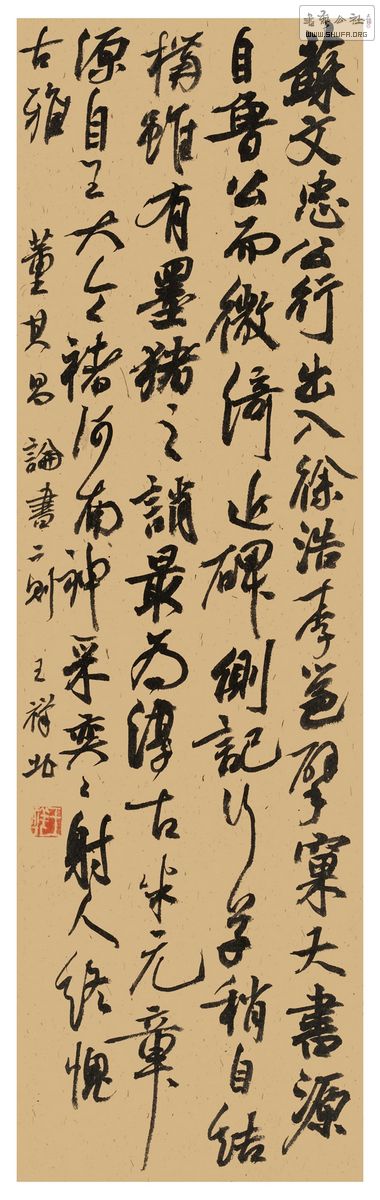 蘇文忠公行出入徐浩李邕擘窠大書源
自魯公而微傷近碑側記行草稍自結
構雖有墨猪之誚最為淳古米元章
源自王大令褚河南神采奕々射人終愧
古雅
董其昌論書二則 王祥北
WWW.SHUFA.ORG